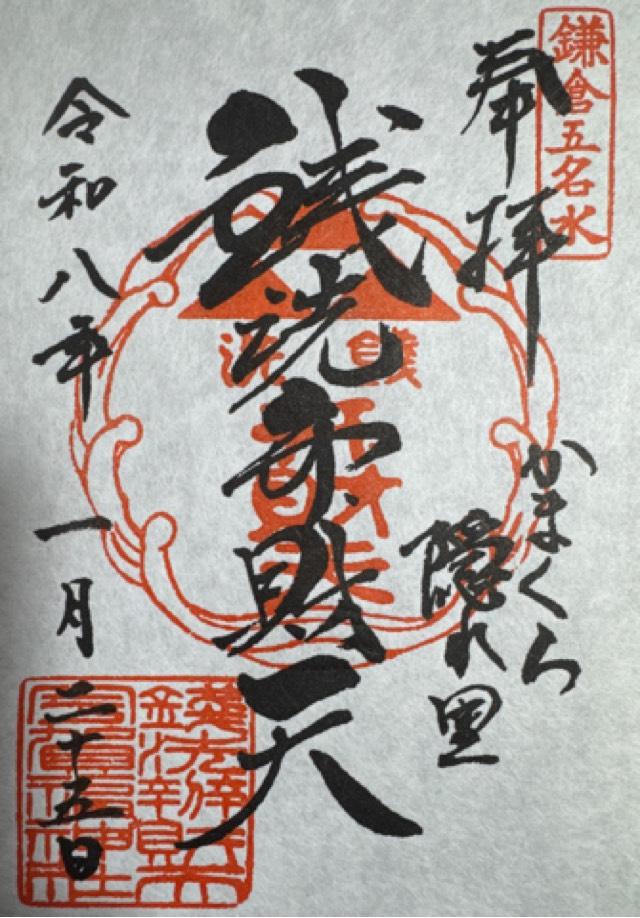 鎌倉五名水
奉拝
かまくら
隠れ里
銭洗弁財天
令和八年 一月 二十五日
銭洗